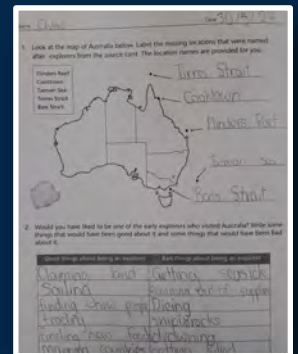 Date 30/5/23
1. Look at the map of Australia below. Label the missing locations that were named
after explorers from the source card. The location names are provided for you.
Flinders Reef
Cooktown
Tasman Sea
Torres Strait
Bass Strait
Torres Strait
Cooktown
Flinders Reef
Tasman Sea
Bass Strait
2. Would you have liked to be one of the early explorers who visited Australia? Write some
things that would have been good about it and some things that would have been bad
about it.
Good things about being an explorer Bad things about being an explorer
Claiming land Getting seasick
Sailing out of
finding Dieing
trading shiprocks
finding new